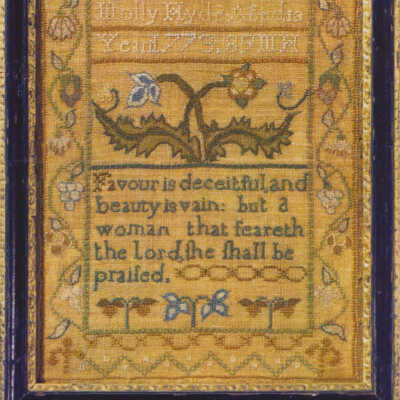 Molly Hyde
Year 177
Favour is deceitful, and
beauty is vain: but a
woman that feareth
the lord, ſhe ſhall be
praiſed.